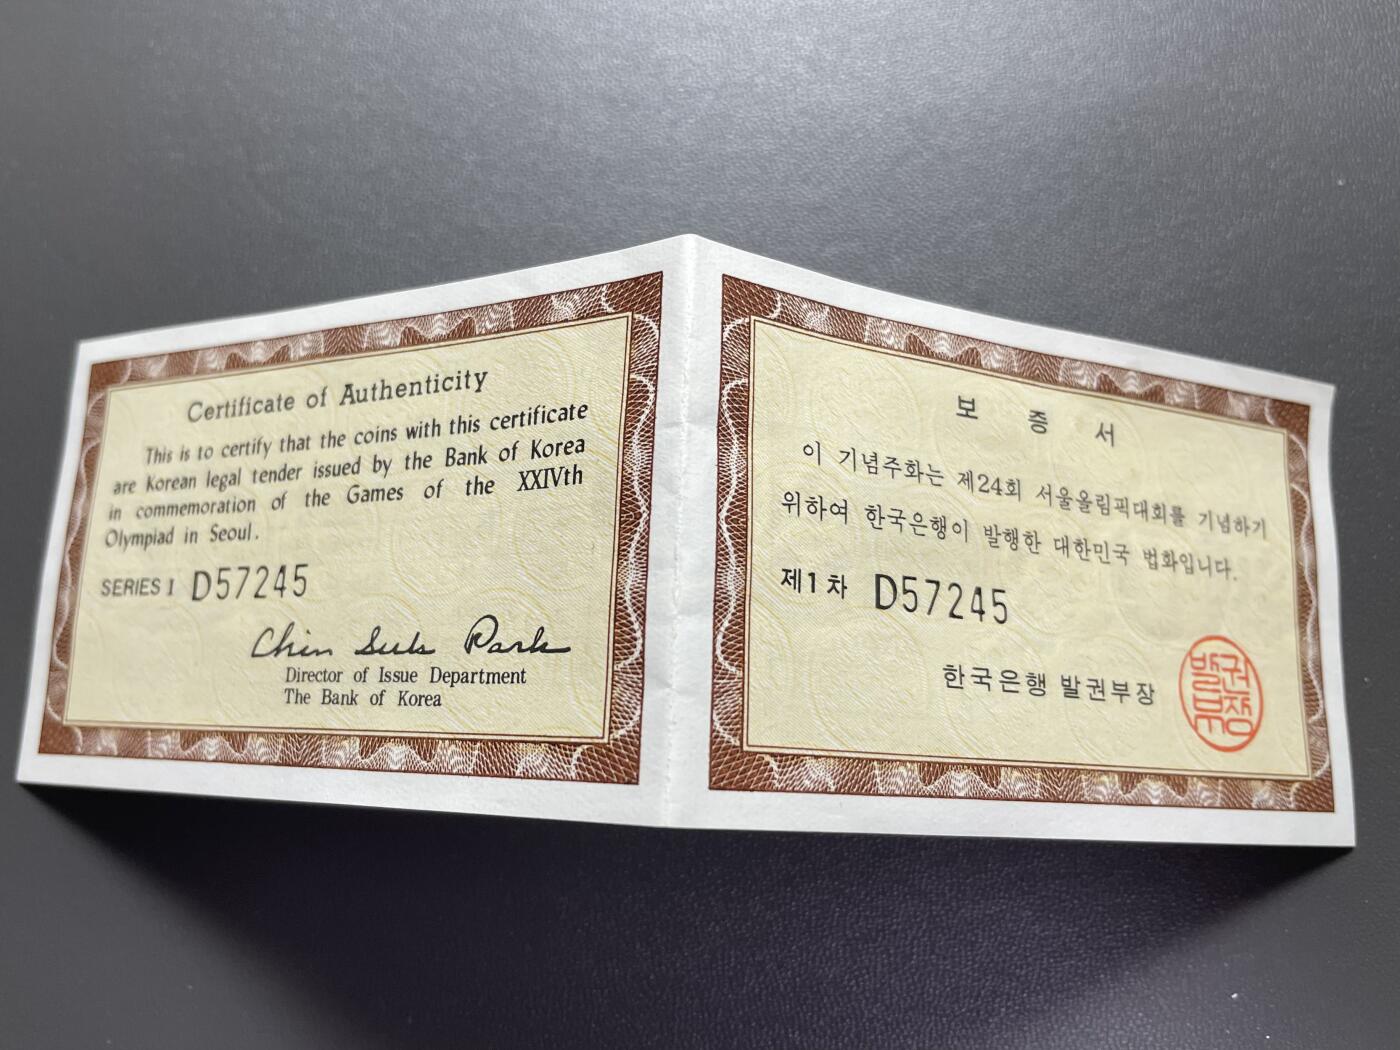 Certificate of Authenticity
This is to certify that the coins with this certificate
are Korean legal tender issued by the Bank of Korea
in commemoration of the Games of the XXIVth
Olympiad in Seoul.
SERIES I D57245
Chin Suk Park
Director of Issue Department
The Bank of Korea
보 증 서
이 기념주화는 제24회 서울올림픽대회를 기념하기
위하여 한국은행이 발행한 대한민국 법화입니다.
제1차 D57245
한국은행 발권부장
발권
부장